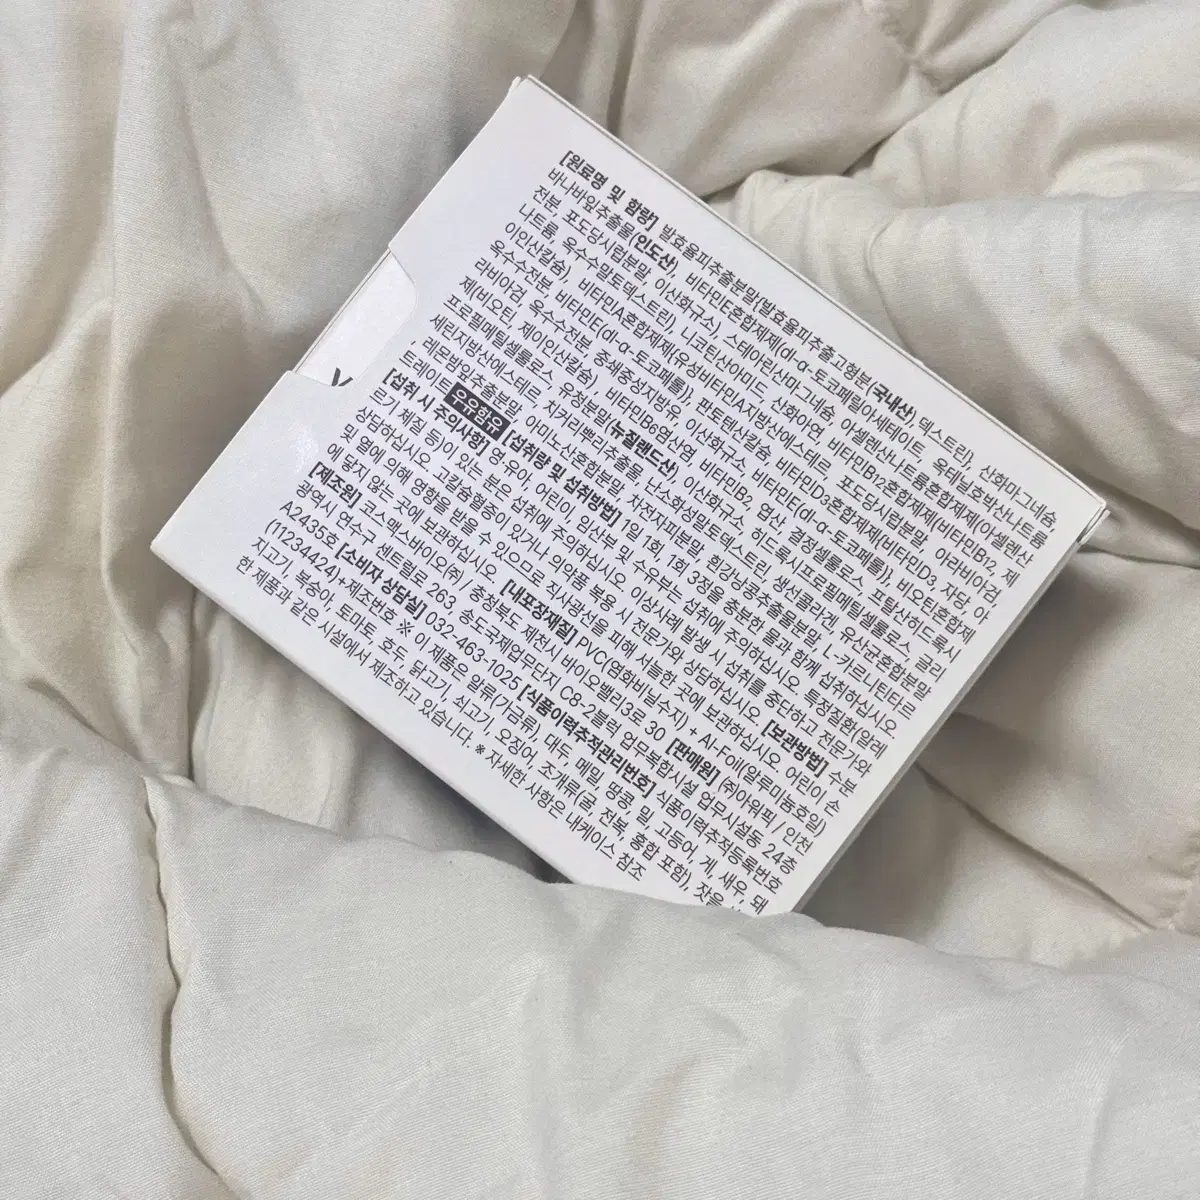 [원료명 및 함량] 발효율피추출분말{발효율피추출고형분(국내산), 덱스트린}, 산화마그네슘
바나바잎추출물(인도산), 비타민E혼합제제(dl-α-토코페릴아세테이트, 옥테닐호박산나트륨
전분, 포도당시럽분말, 이산화규소), 스테아린산마그네슘, 아셀렌산나트륨혼합제제(아셀렌산
나트륨, 옥수수말토덱스트린), 니코틴산아미드, 산화아연, 비타민B12혼합제제(비타민B12, 제
이인산칼슘), 비타민A혼합제제{유성비타민A지방산에스테르, 포도당시럽분말, 아라비아검,
옥수수전분, 비타민E(dl-α-토코페롤)}, 판토텐산칼슘, 비타민D3혼합제제{비타민D3, 자당, 아
라비아검, 옥수수전분, 중쇄중성지방유, 이산화규소, 비타민E(dl-α-토코페롤)}, 비오틴혼합제
제(비오틴, 제이인산칼슘), 비타민B6염산염, 비타민B2, 염산, 결정셀룰로스, 프탈산히드록시
프로필메틸셀룰로스, 유청분말(뉴질랜드산), 이산화규소, 히드록시프로필메틸셀룰로스, 글리
세린지방산에스테르, 치커리뿌리추출물, 난소화성말토덱스트린, 생선콜라겐, 유산균혼합분말
, 레몬밤잎추출분말, 아미노산혼합분말, 차전자피분말, 흰강낭콩추출물분말, L-카르니틴타르
트레이트 우유함유 [섭취량 및 섭취방법] 1일 1회, 1회 3정을 충분한 물과 함께 섭취하십시오
[섭취 시 주의사항] 영·유아, 어린이, 임산부 및 수유부는 섭취에 주의하십시오. 특정질환(알레
르기 체질 등)이 있는 분은 섭취에 주의하십시오. 이상사례 발생 시 섭취를 중단하고 전문가와
상담하십시오. 고칼슘혈증이 있거나 의약품 복용 시 전문가와 상담하십시오. 어린이 손
에 닿지 않는 곳에 보관하십시오. [보관방법] 수분
및 열에 의해 영향을 받을 수 있으므로 직사광선을 피해 서늘한 곳에 보관하십시오
[내포장재질] PVC(염화비닐수지) + Al-Foil(알루미늄호일)
[제조원] 코스맥스바이오㈜ / 충청북도 제천시 바이오밸리3로 30 [판매원] ㈜아워픽 / 인천
광역시 연수구 센트럴로 263, 송도국제업무단지 C8-2블럭 업무복합시설 업무시설동 24층
A2435호 [소비자 상담실] 032-463-1025 [식품이력추적관리번호] 식품이력추적등록번호
(11234424)+제조번호 ※ 이 제품은 알류(가금류), 대두, 메밀, 땅콩, 밀, 고등어, 게, 새우, 돼
지고기, 복숭아, 토마토, 호두, 닭고기, 쇠고기, 오징어, 조개류(굴, 전복, 홍합 포함), 잣을
한 제품과 같은 시설에서 제조하고 있습니다. ※ 자세한 사항은 내케이스 참조